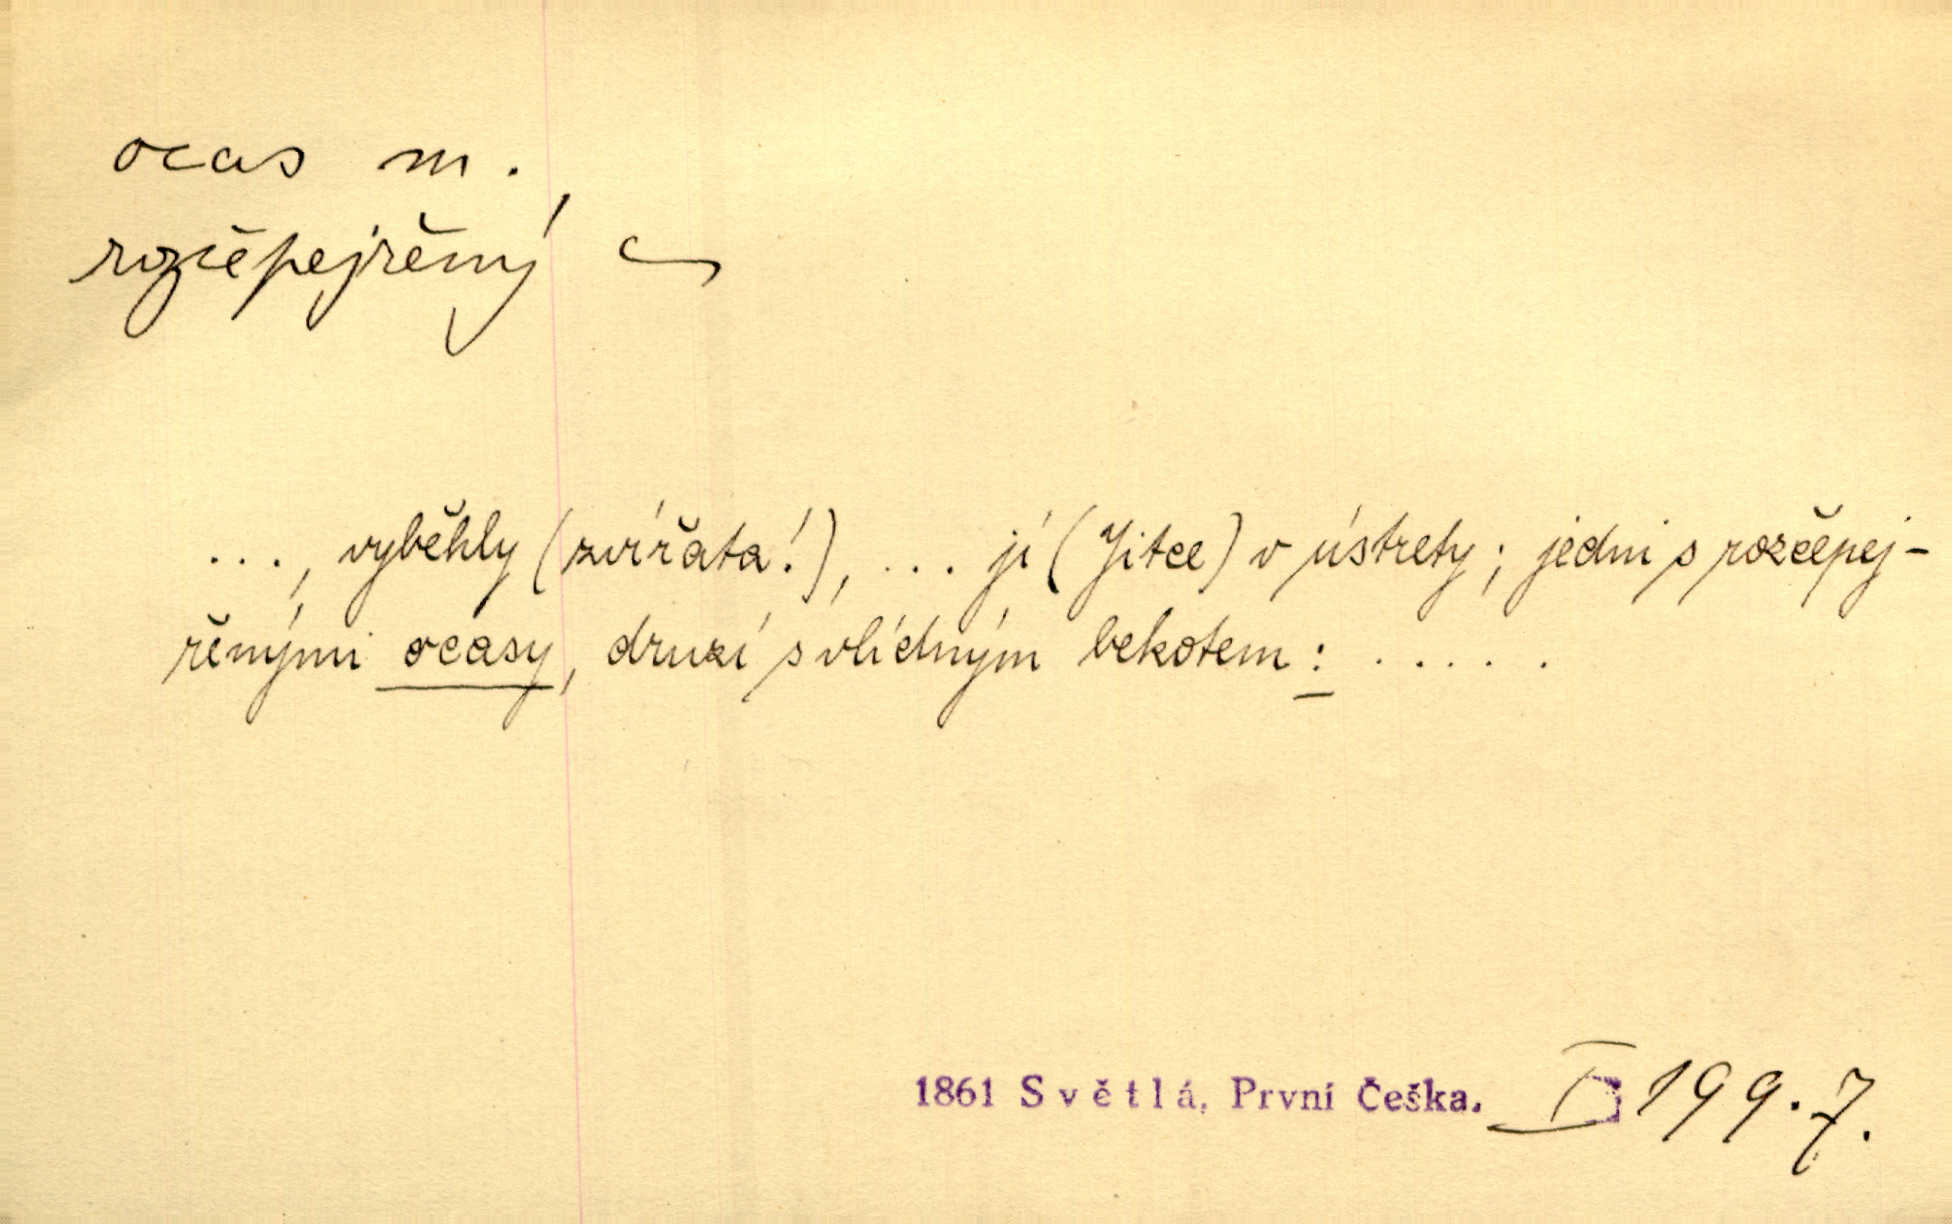 ocas m.
rozčepejřený ~
..., vyběhly (zvířata!), ... jí (Jitce) v ústrety; jedni s rozčepej-
řenými ocasy, druzí s vlídným bekotem: .....
1861 Světlá, První Češka. I 199.7.